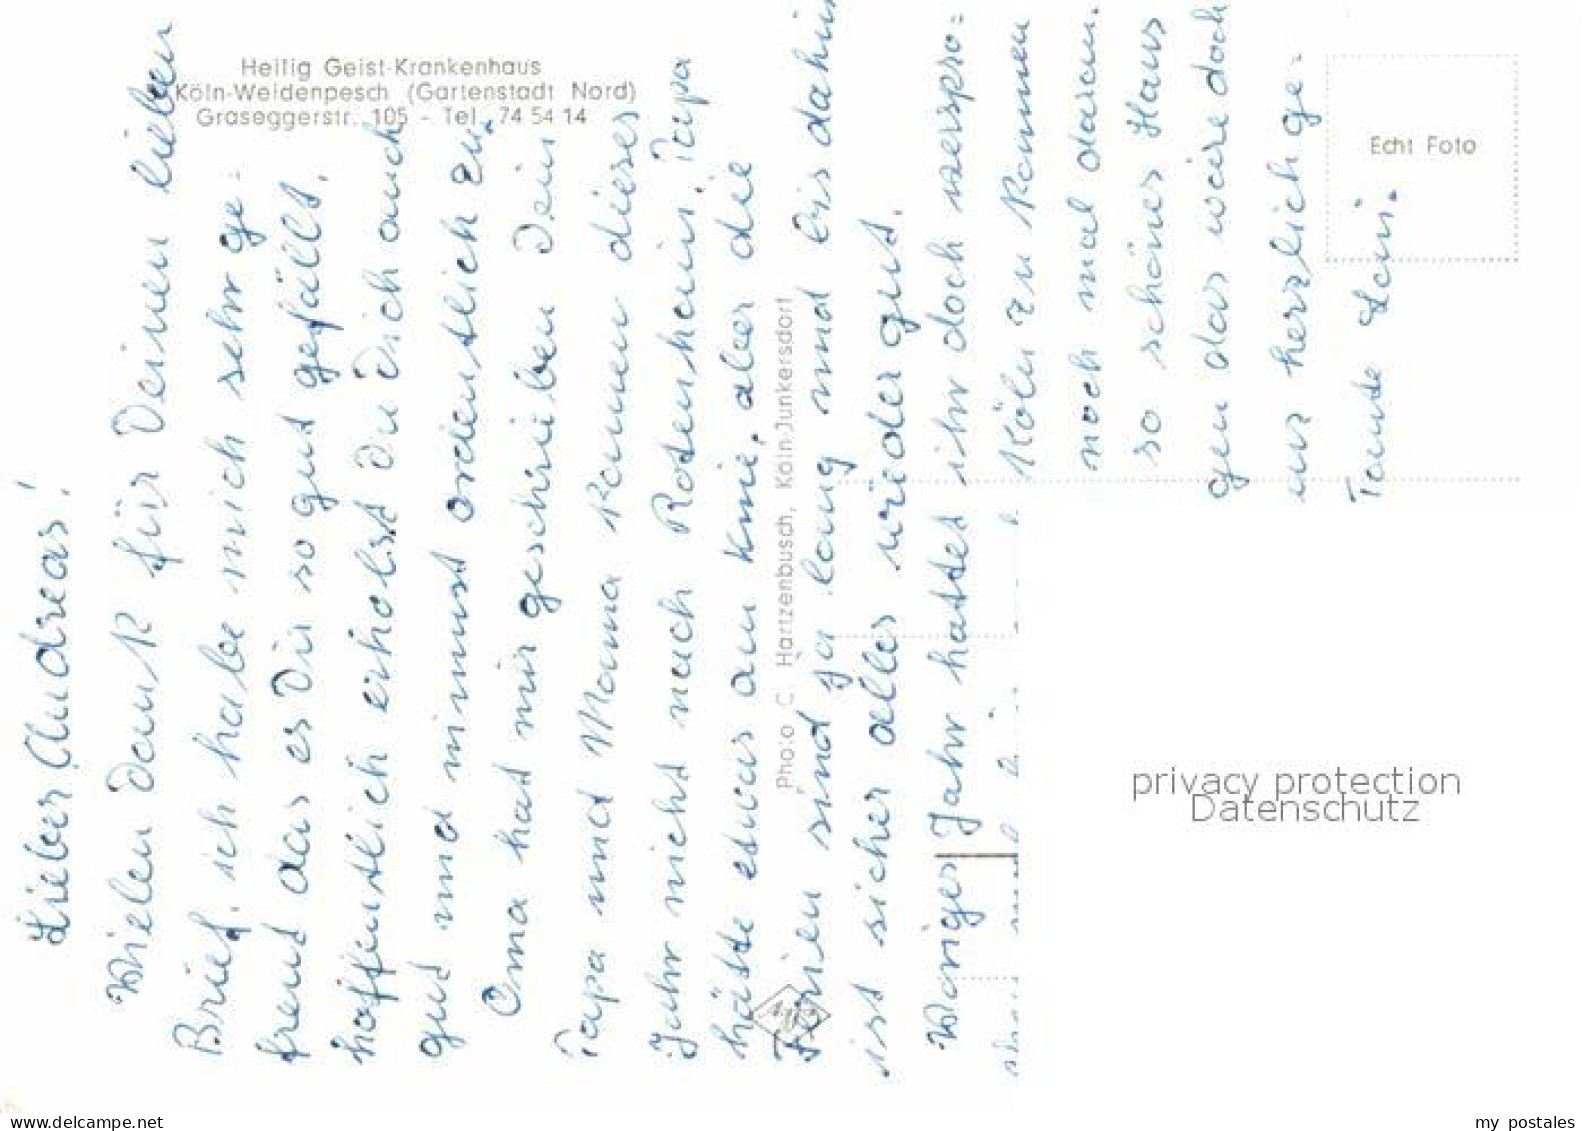 Heilig Geist-Krankenhaus
Köln-Weidenpesch (Gartenstadt Nord)
Graseggerstr. 105 - Tel. 74 54 14
Echt Foto
Lieber Andreas!
Vielen Dank für Deinen lieben
Brief. ich habe mich sehr ge-
freut das es Dir so gut gefällt,
hoffentlich erholst Du Dich auch
gut und nimmst ordentlich zu.
Oma hat mir geschrieben Dein
Papa und Mama kommen dieses
Jahr nicht nach Rotenhein. Papa
hätte etwas am Knie. aber die
Ferien sind ja lang und bis dahin
ist sicher alles wieder gut.
Voriges Jahr hattet ihr doch verspro=
Köln zu kommen
noch mal darum.
so schönes Haus
gen das wäre doch
herzlich ge-
Tante Leni.
Photo C. Hartzenbusch, Köln-Junkersdorf
privacy protection
Datenschutz
www.delcampe.net
my_postales